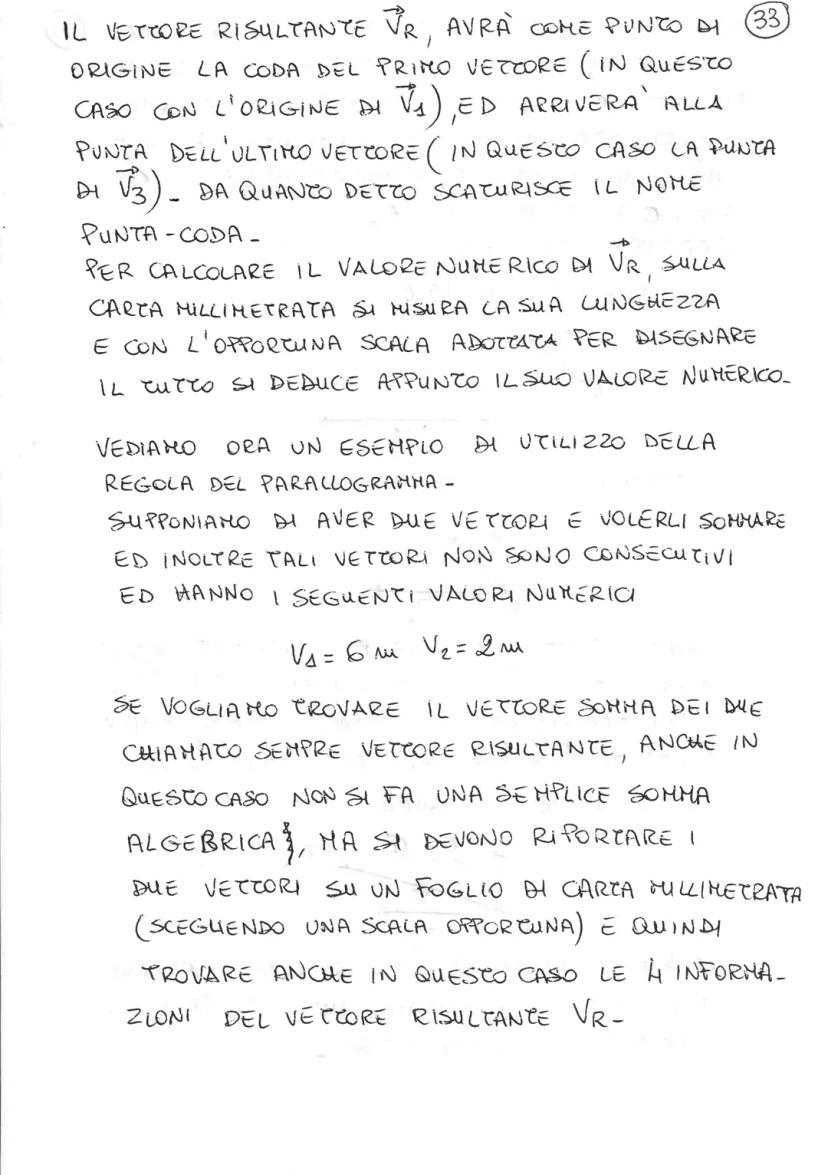 IL VETTORE RISULTANTE V⃗R, AVRÀ COME PUNTO DI (33)
ORIGINE LA CODA DEL PRIMO VETTORE (IN QUESTO
CASO CON L'ORIGINE DI V⃗1), ED ARRIVERA' ALLA
PUNTA DELL'ULTIMO VETTORE (IN QUESTO CASO LA PUNTA
DI V⃗3)_ DA QUANTO DETTO SCATURISCE IL NOME
PUNTA-CODA_
PER CALCOLARE IL VALORE NUMERICO DI V⃗R, SULLA
CARTA MILLIMETRATA SI MISURA LA SUA LUNGHEZZA
E CON L'OPPORTUNA SCALA ADOTTATA PER DISEGNARE
IL TUTTO SI DEDUCE APPUNTO IL SUO VALORE NUMERICO_
VEDIAMO ORA UN ESEMPIO DI UTILIZZO DELLA
REGOLA DEL PARALLOGRAMMA-
SUPPONIAMO DI AVER DUE VETTORI E VOLERLI SOMMARE
ED INOLTRE TALI VETTORI NON SONO CONSECUTIVI
ED HANNO I SEGUENTI VALORI NUMERICI
V1 = 6 m V2 = 2 m
SE VOGLIAMO TROVARE IL VETTORE SOMMA DEI DUE
CHIAMATO SEMPRE VETTORE RISULTANTE, ANCHE IN
QUESTO CASO NON SI FA UNA SEMPLICE SOMMA
ALGEBRICA, MA SI DEVONO RIPORTARE I
DUE VETTORI SU UN FOGLIO DI CARTA MILLIMETRATA
(SCEGLIENDO UNA SCALA OPPORTUNA) E QUINDI
TROVARE ANCHE IN QUESTO CASO LE 4 INFORMA_
ZIONI DEL VETTORE RISULTANTE VR-